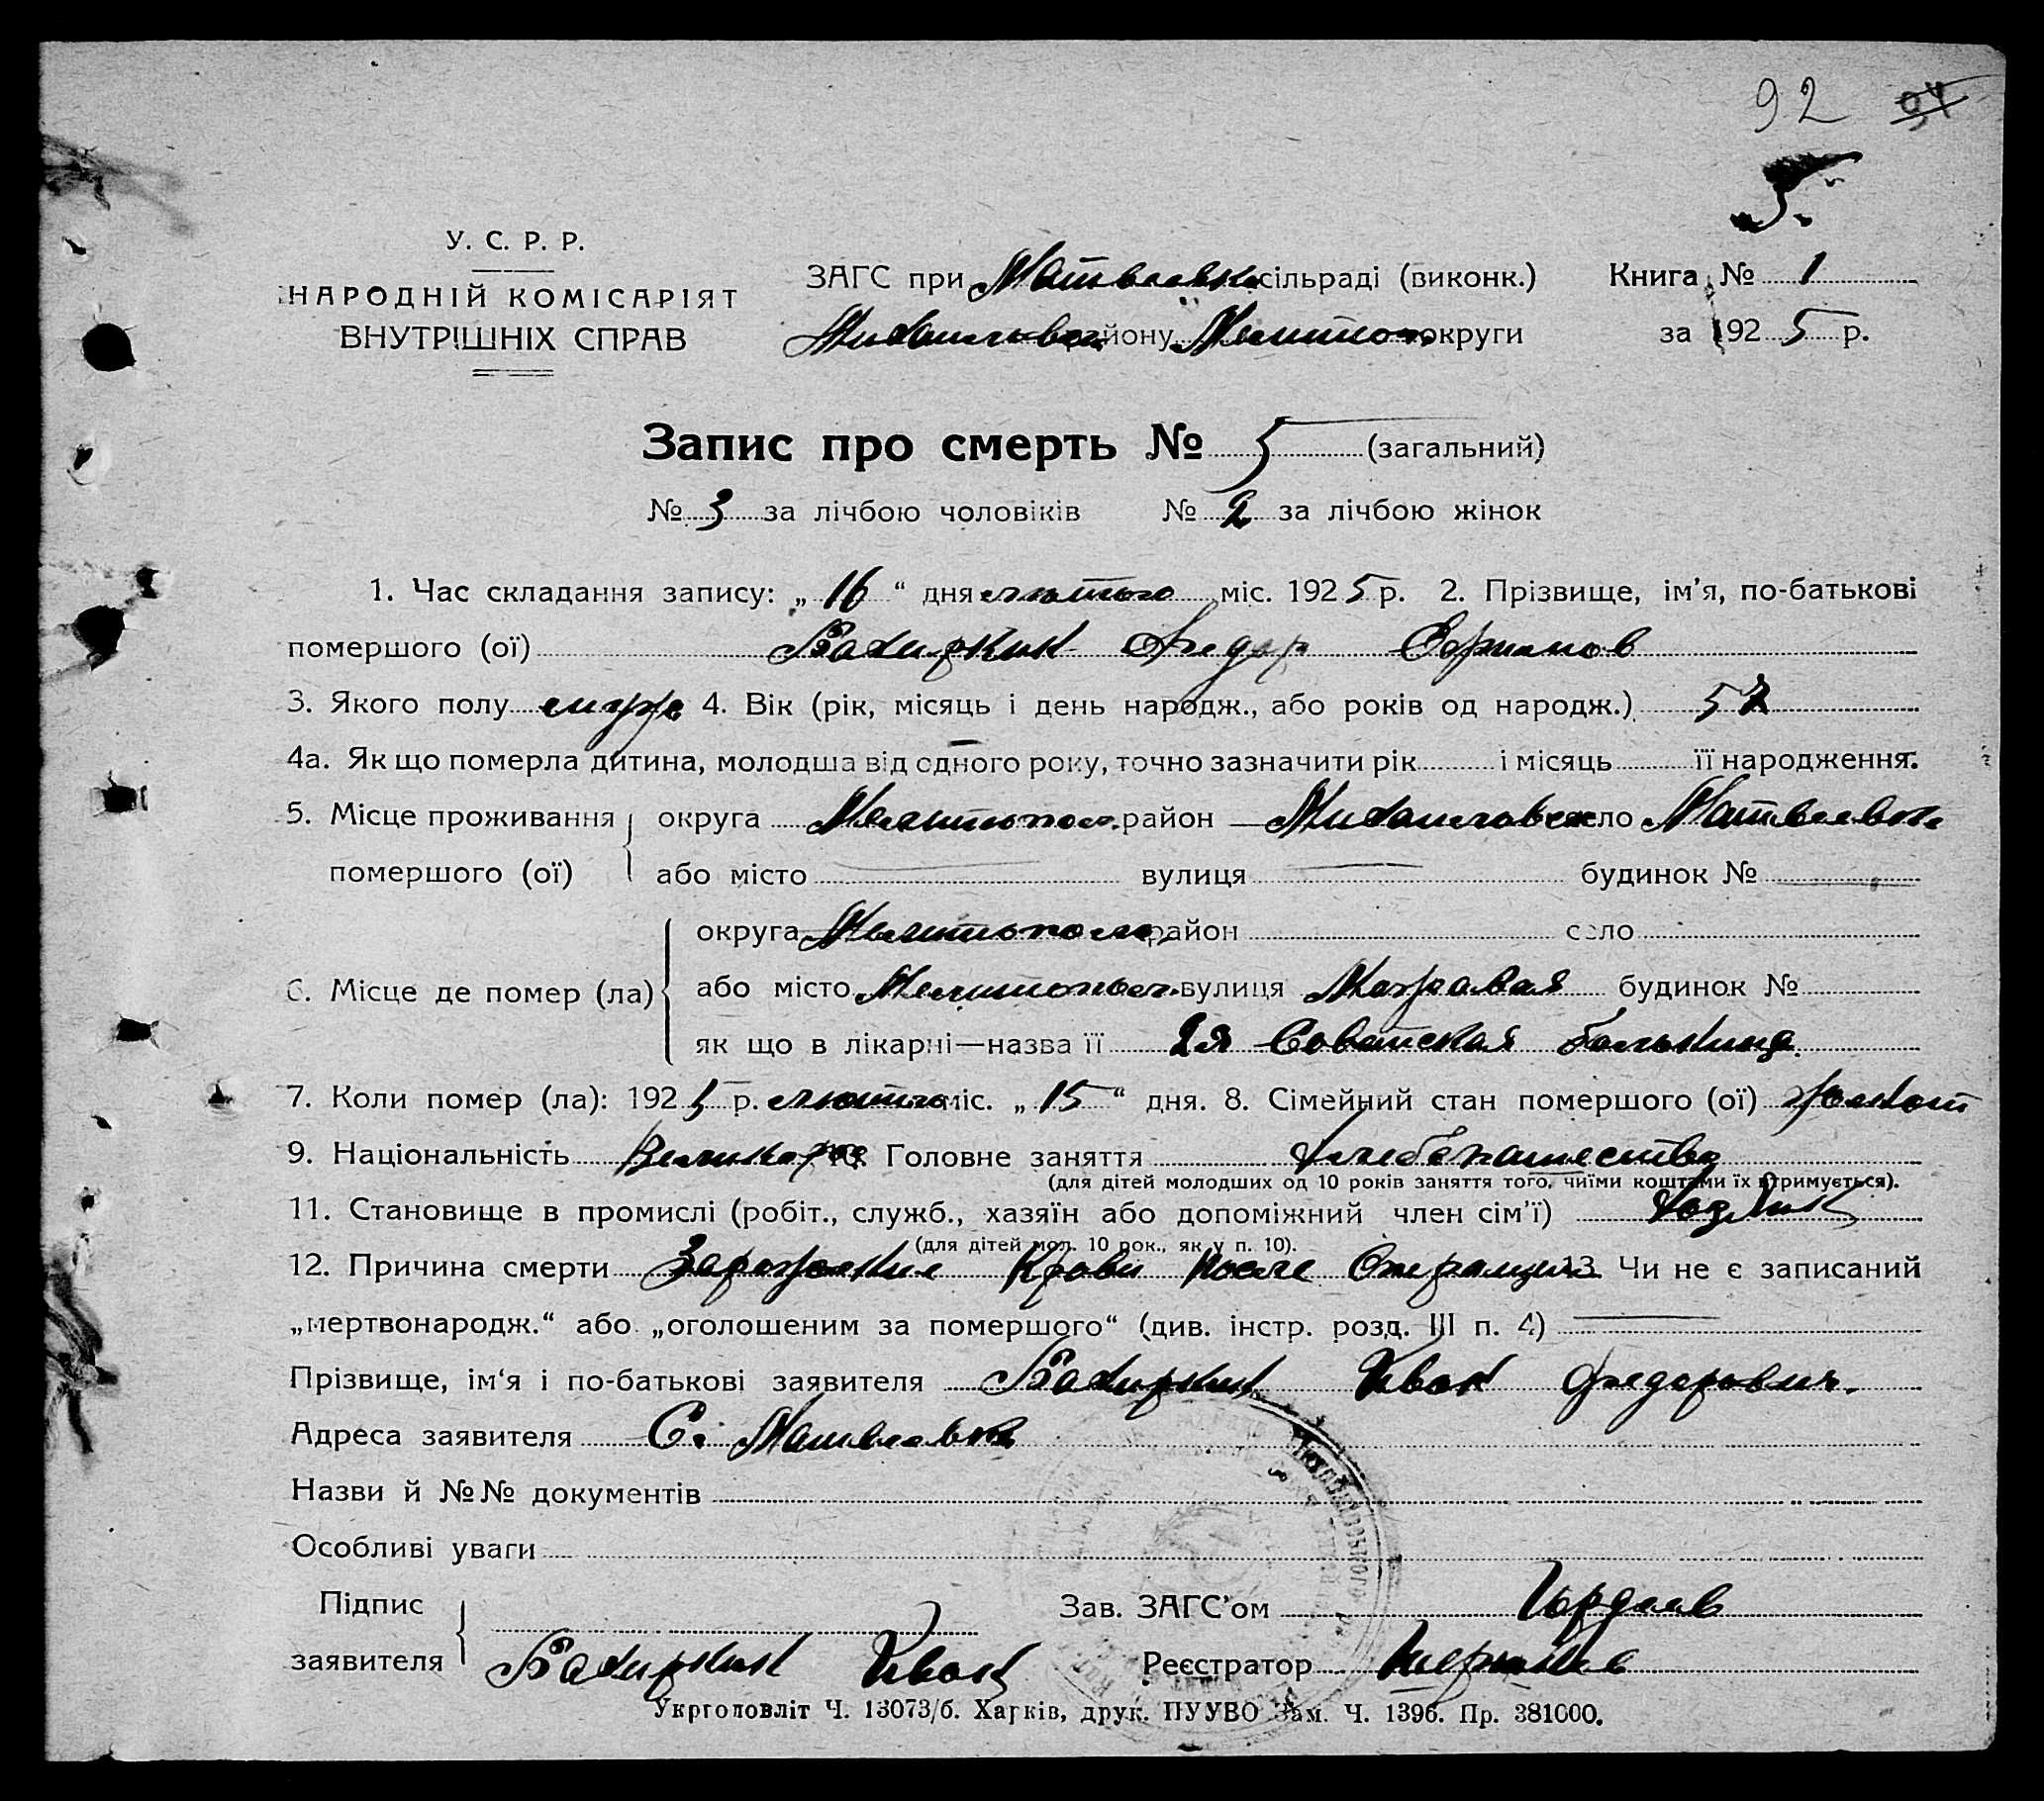 92 94
5.
У. С. Р. Р.
НАРОДНІЙ КОМІСАРІЯТ
ВНУТРІШНІХ СПРАВ
ЗАГС при Матвеевк сільраді (виконк.)
Михайловск району Мелитоп. округи
Книга № 1
за 1925 р.
Запис про смерть № 5 (загальний)
№ 3 за лічбою чоловіків № 2 за лічбою жінок
1. Час складання запису: „16“ дня лютого міс. 1925 р. 2. Прізвище, ім’я, по-батькові
помершого (ої) Федор
3. Якого полу муж 4. Вік (рік, місяць і день народж., або років од народж.) 57
4а. Як що померла дитина, молодша від одного року, точно зазначити рік і місяць її народження.
5. Місце проживання округа Мелитопол. район Михайловск село Матвеевк
помершого (ої) або місто вулиця будинок №
округа Мелитопол. район село
6. Місце де помер (ла) або місто Мелитополь вулиця будинок №
як що в лікарні—назва її 2я Советская больница.
7. Коли помер (ла): 1925 р. лютого міс. „15“ дня. 8. Сімейний стан помершого (ої) женат
9. Національність Великорос 10. Головне заняття хлебопашество
(для дітей молодших од 10 років заняття того, чиїми коштами їх втримується).
11. Становище в промислі (робіт., служб., хазяїн або допоміжний член сім’ї)
(для дітей мол. 10 рок., як у п. 10).
12. Причина смерти Заражение Крови после Операции 13. Чи не є записаний
„мертвонародж.“ або „оголошеним за помершого“ (див. інстр. розд. III п. 4)
Прізвище, ім‘я і по-батькові заявителя Иван Федорович.
Адреса заявителя С. Матвеевка
Назви й №№ документів
Особливі уваги
Підпис Зав. ЗАГС’ом Гордеев
заявителя Иван Реєстратор
Укрголовліт Ч. 13073/б. Харків, друк. ПУУВО Зам. Ч. 1396. Пр. 381000.